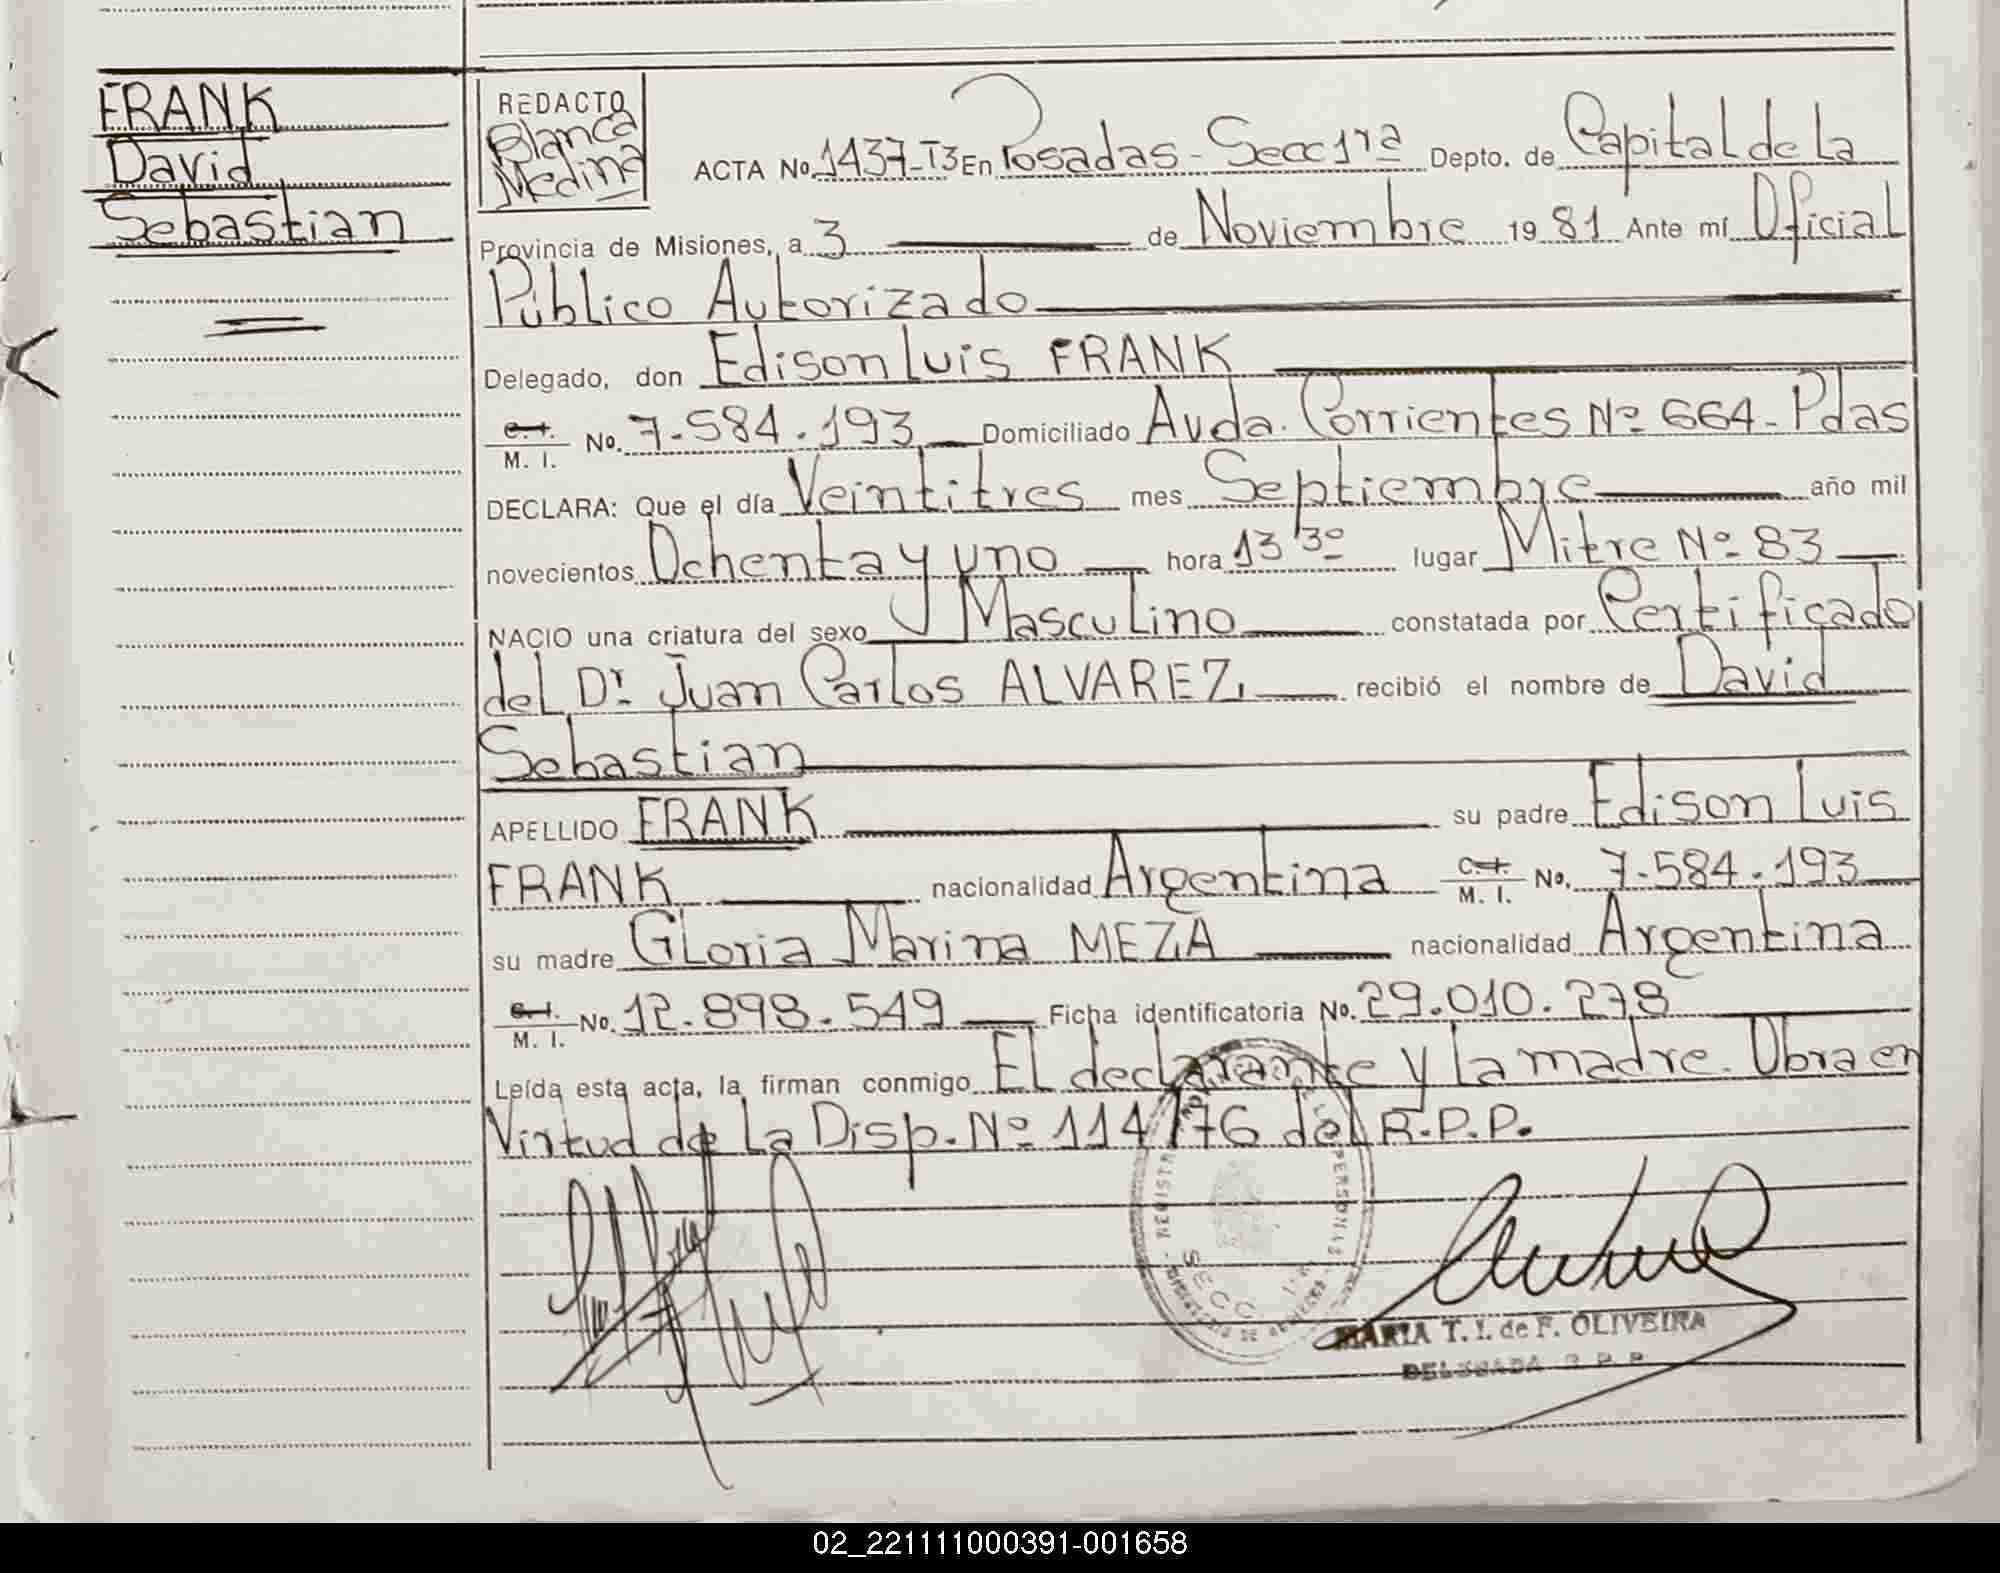 FRANK
David
Sebastian
REDACTO
Blanca
Medina
ACTA No. 1437-T3 En Posadas - Secc 1ra Depto. de Capital de La
Provincia de Misiones, a 3 de Noviembre 19 81 Ante mí Oficial
Público Autorizado
Delegado, don Edison Luis FRANK
C. I.
M. I. No. 7.584.193 Domiciliado Avda. Corrientes Nº 664 - Pdas
DECLARA: Que el día Veintitres mes Septiembre año mil
novecientos Ochenta y uno hora 13 30 lugar Mitre Nº 83
NACIO una criatura del sexo Masculino constatada por Certificado
del Dr Juan Carlos ALVAREZ, recibió el nombre de David
Sebastian
APELLIDO FRANK su padre Edison Luis
FRANK nacionalidad Argentina C. I.
M. I. No. 7.584.193
su madre Gloria Marina MEZA nacionalidad Argentina
C. I.
M. I. No. 12.898.549 Ficha identificatoria No. 29.010.278
Leída esta acta, la firman conmigo El declarante y La madre. Obra en
Virtud de La Disp. Nº 114/76 del R.P.P.
PERSONAS
SECC
MARIA T. I. de F. OLIVEIRA
DELEGADA R. P. P.
02_221111000391-001658